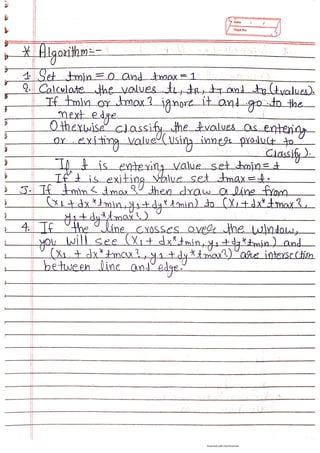 * Algorithm:-
1. Set tmin = 0 and tmax = 1
2. Calculate the values tL, tR, tT and tB (tvalues).
If tmin or tmax? ignore it and go to the
next edge
Otherwise classify the tvalues as entering
or exiting value (using inner product to
classify).
If t is entering value set tmin = t
If t is exiting value set tmax = t.
3. If tmin < tmax? then draw a line from
(x1 + dx*tmin, y1 + dy*tmin) to (x1 + dx*tmax?,
y1 + dy*tmax?)
4. If the line crosses over the window,
you will see (x1 + dx*tmin, y1 + dy*tmin) and
(x1 + dx*tmax?, y1 + dy*tmax?) are intersection
between line and edge.